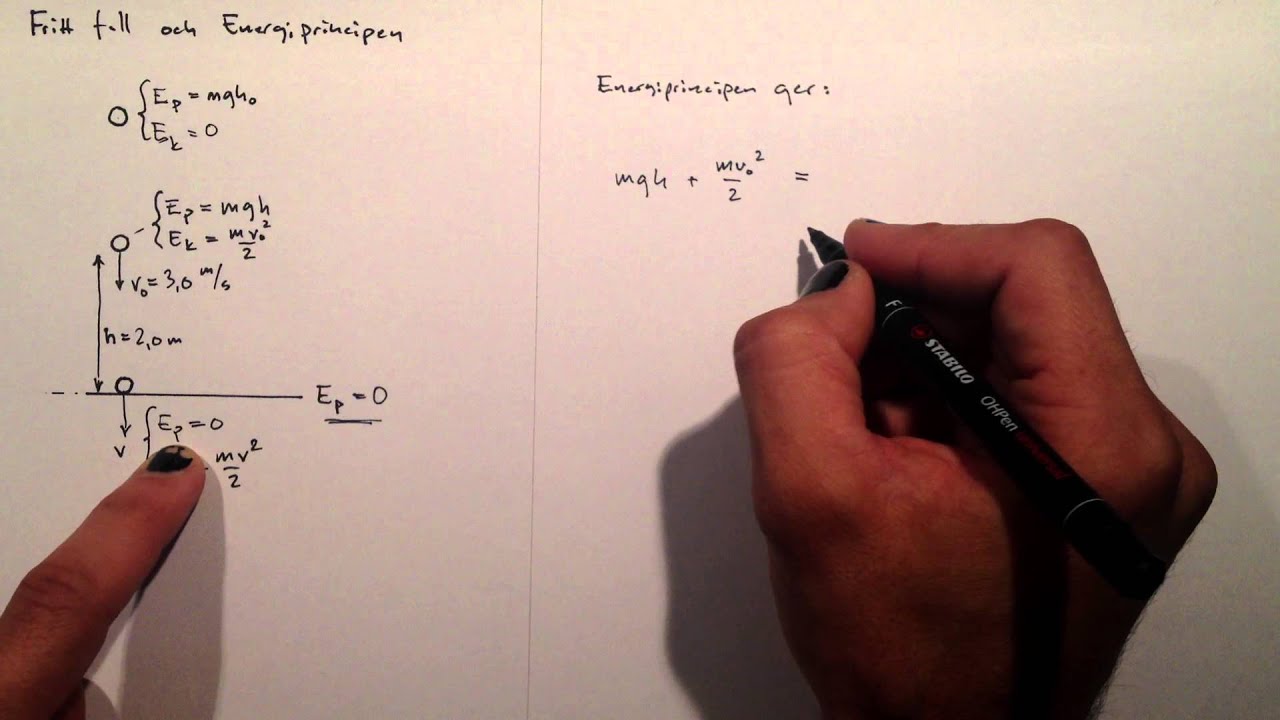 Fritt fall och Energiprincipen
E_p = mgh₀
E_k = 0
E_p = mgh
E_k = mv₀²/2
v₀ = 3,0 m/s
h = 2,0 m
E_p = 0
E_p = 0
v
mv²/2
Energiprincipen ger:
mgh + mv₀²/2 =
STABILO
OHPen